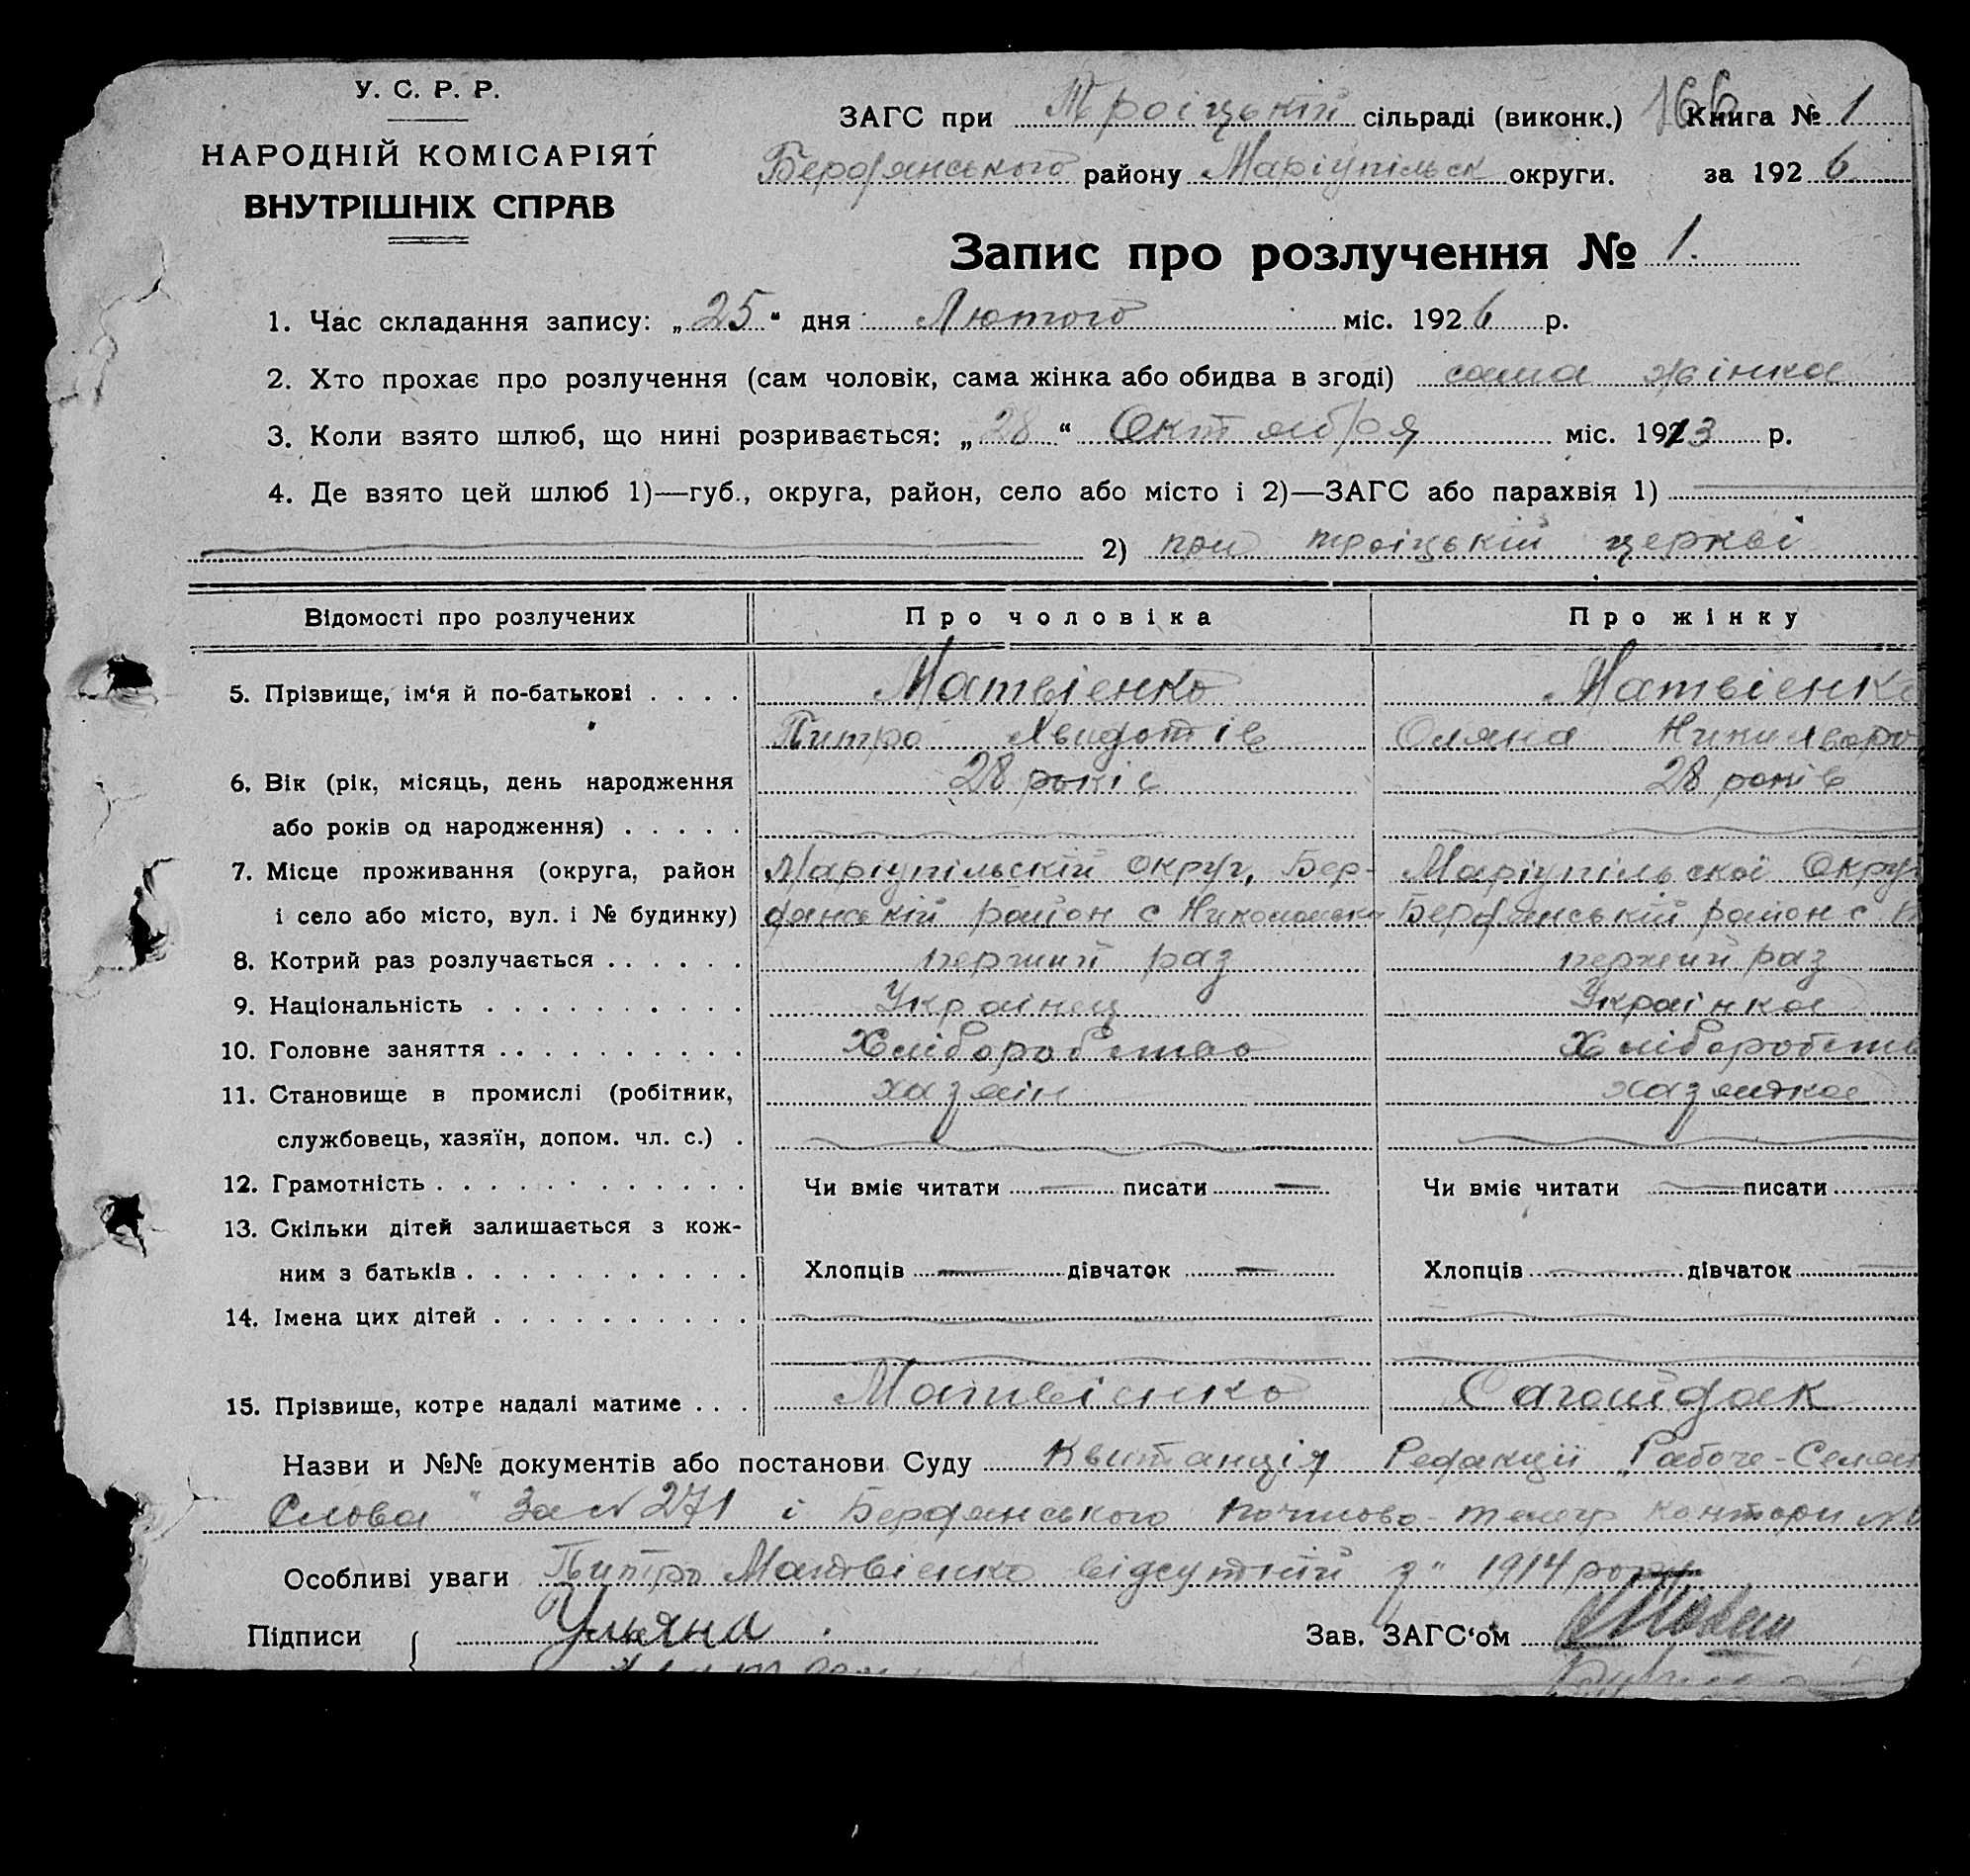 У. С. Р. Р.
НАРОДНІЙ КОМІСАРІЯТ
ВНУТРІШНІХ СПРАВ
ЗАГС при Троіцькій сільраді (виконк.) 166 Книга № 1
Бердянського району Маріупільск округи. за 1926
Запис про розлучення № 1.
1. Час складання запису: „25“ дня Лютого міс. 1926 р.
2. Хто прохає про розлучення (сам чоловік, сама жінка або обидва в згоді) сама жінка
3. Коли взято шлюб, що нині розривається: „28“ Октября міс. 1913 р.
4. Де взято цей шлюб 1)—губ., округа, район, село або місто і 2)—ЗАГС або парахвія 1)
2) при троіцькій церкві
Відомості про розлучених Про чоловіка Про жінку
5. Прізвище, ім‘я й по-батькові . . . . Матвіенко Матвіенко
Питро Хвидотів Оляна
6. Вік (рік, місяць, день народження 28 років 28 років
або років од народження) . . . . .
7. Місце проживання (округа, район Маріупільскій округ, Бер- Маріупільскоі Округ
і село або місто, вул. і № будинку) дянській район с Бердянській район с
8. Котрий раз розлучається . . . . . . перший раз перший раз
9. Національність . . . . . . . . . . Украінец Украінка
10. Головне заняття . . . . . . . . . . Хліборобство Хліборобств
11. Становище в промислі (робітник, хазяін хазяйка
службовець, хазяїн, допом. чл. с.) .
12. Грамотність . . . . . . . . . . . . Чи вміє читати — писати — Чи вміє читати — писати
13. Скільки дітей залишається з кож-
ним з батьків . . . . . . . . . . . Хлопців — дівчаток — Хлопців дівчаток —
14. Імена цих дітей . . . . . . . . . .
15. Прізвище, котре надалі матиме . . . Матвіенко Сагайдак
Назви и №№ документів або постанови Суду Квитанція Редакціі „Рабоче-Селян
Слова“ За № 271 і Бердянського почтово-телегр контори №
Особливі уваги Питро Матвіенко відсутній з 1914 року
Підписи Уляна Зав. ЗАГС‘ом